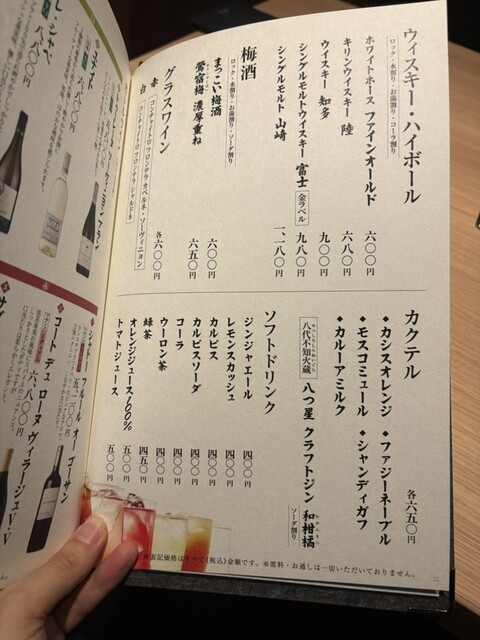 ウィスキー・ハイボール
ロック・水割り・お湯割り・コーラ割り
ホワイトホース ファインオールド 六〇〇円
キリンウイスキー 陸 六八〇円
ウイスキー 知多 九〇〇円
シングルモルトウイスキー 富士 金ラベル 九八〇円
シングルモルト 山崎 一、一八〇円
梅酒
ロック・水割り・お湯割り・ソーダ割り
まっこい梅酒 六〇〇円
鶯宿梅 濃厚重ね 六五〇円
グラスワイン 各六〇〇円
赤 コンチャイトロ フロンテラ カベルネ・ソーヴィニヨン
白 コンチャイトロ フロンテラ シャルドネ
カクテル 各六五〇円
◆カシスオレンジ ◆ファジーネーブル
◆モスコミュール ◆シャンディガフ
◆カルーアミルク
八代不知火蔵 八つ星 クラフトジン 和柑橘
ソーダ割り
ソフトドリンク
ジンジャエール 四〇〇円
レモンスカッシュ 四〇〇円
カルピス 四〇〇円
カルピスソーダ 四〇〇円
コーラ 四〇〇円
ウーロン茶 四五〇円
緑茶 四五〇円
オレンジジュース100% 五〇〇円
トマトジュース 五〇〇円
表記価格はすべて《税込》金額です。※席料・お通しは一切いただいておりません。
コート デュ ローヌ ヴィラージュ V.V
六、八〇〇円